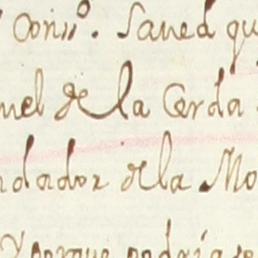 Consº. Saved qu
uel de la Cerda
ndador de la Mo
Y porque podría se